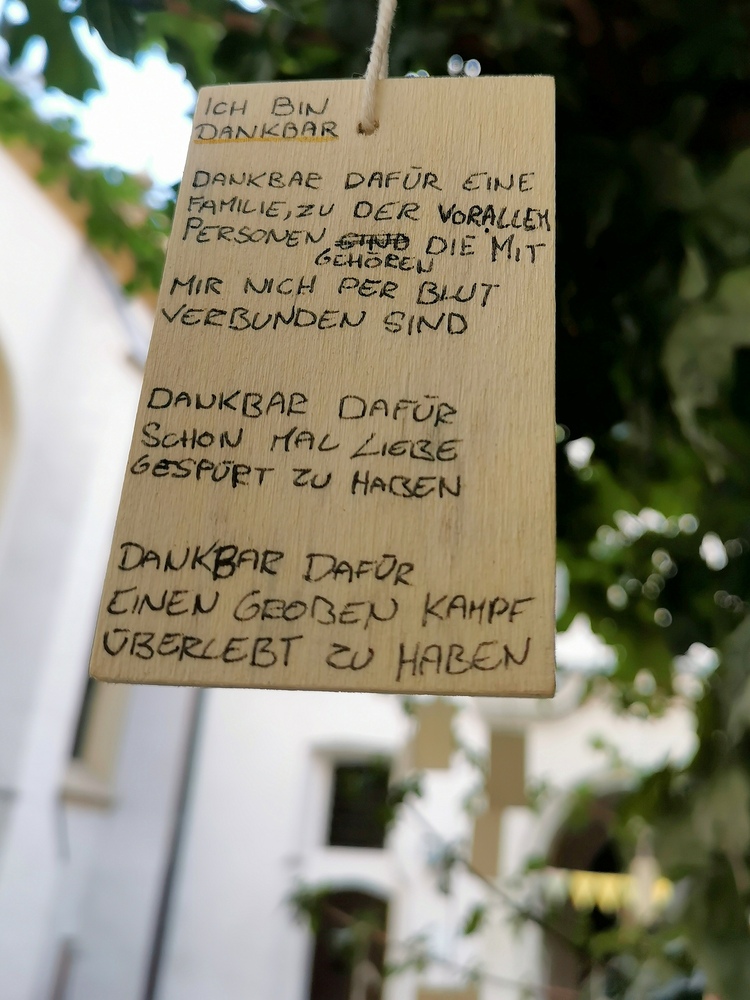 ICH BIN
DANKBAR
DANKBAR DAFÜR EINE
FAMILIE, ZU DER VORALLEM
PERSONEN SIND DIE MIT
GEHÖREN
MIR NICH PER BLUT
VERBUNDEN SIND
DANKBAR DAFÜR
SCHON MAL LIEBE
GESPÜRT ZU HABEN
DANKBAR DAFÜR
EINEN GROßEN KAMPF
ÜBERLEBT ZU HABEN